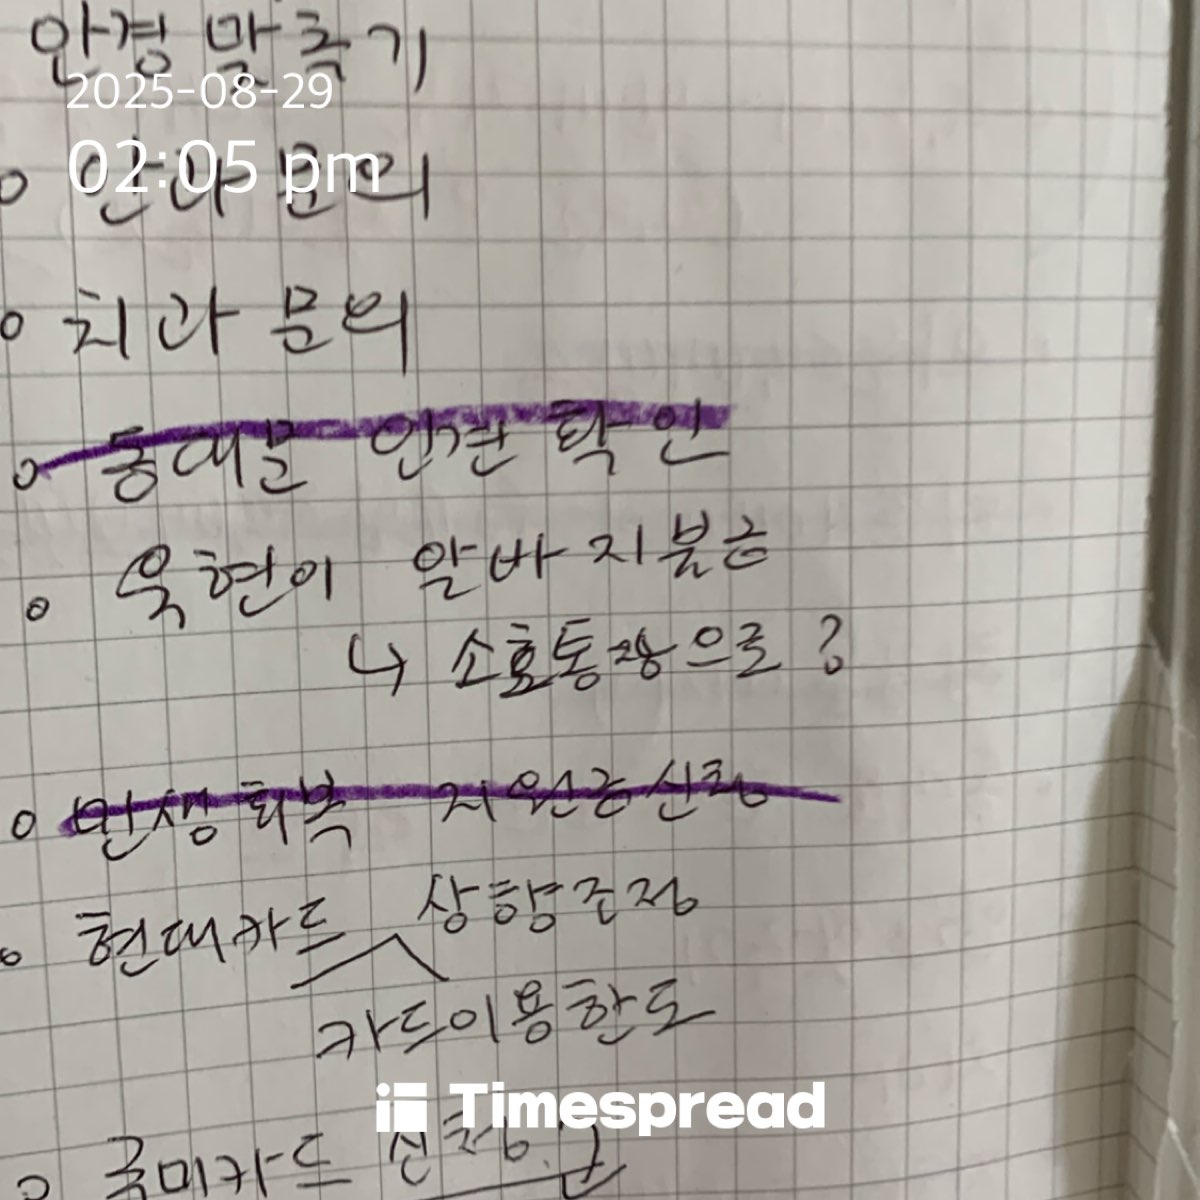 안경 맞추기
2025-08-29
02:05 pm
문의
치과 문의
동대문 인견 확인
욱현이 알바 지불금
↳ 소호통장으로?
민생회복 지원금신청
현대카드 상향조정
카드이용한도
Timespread
카드 신청